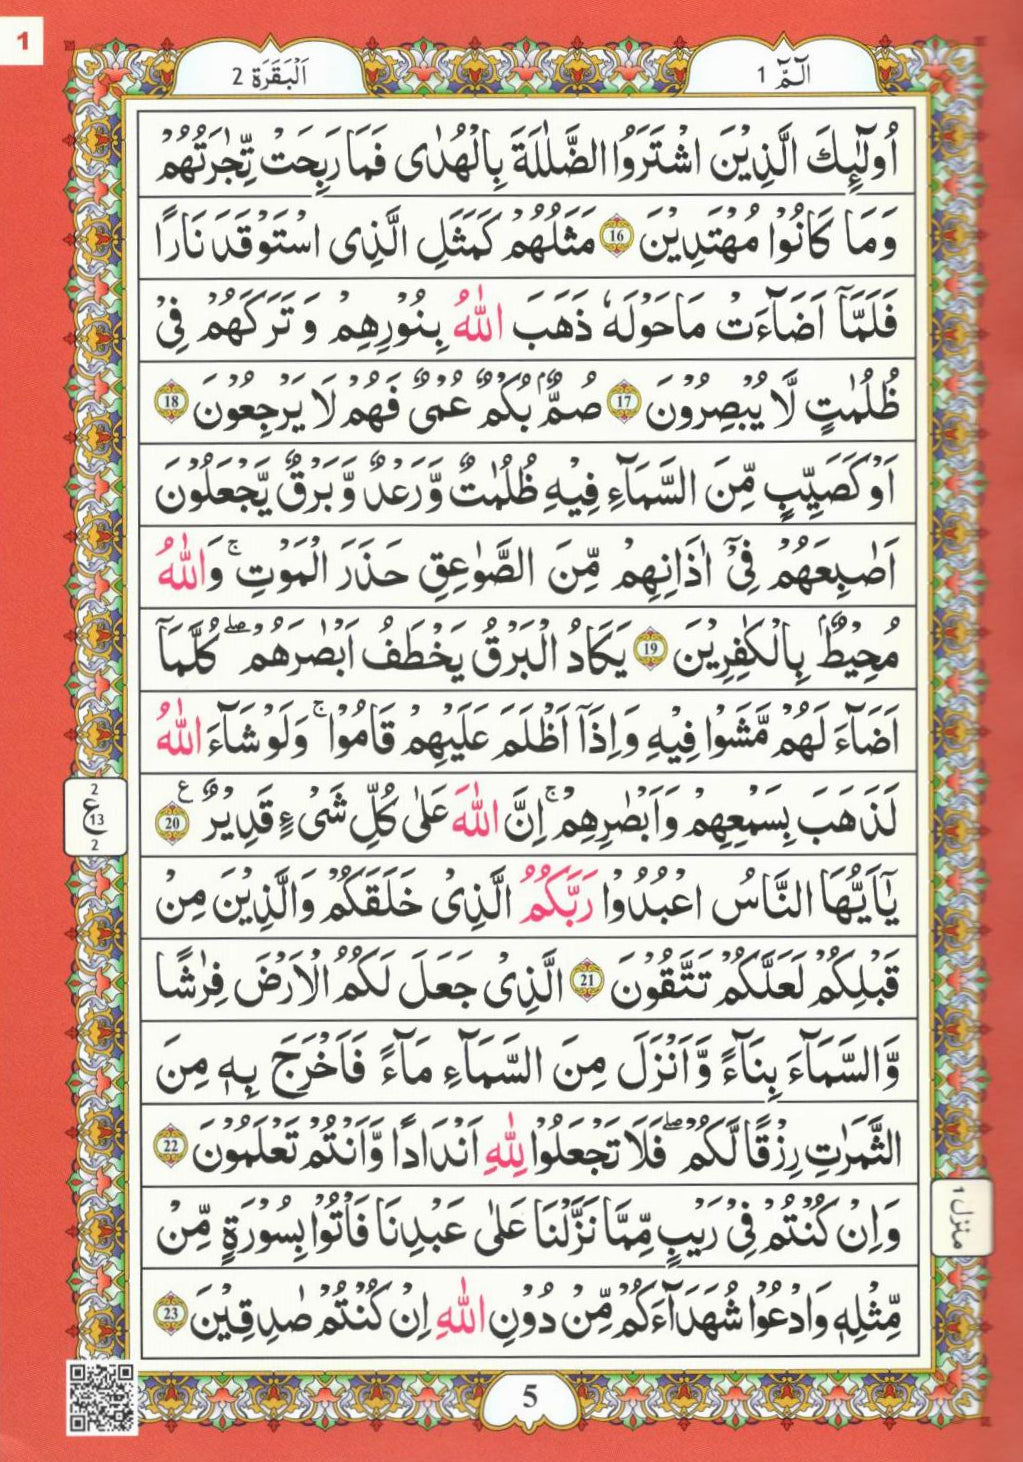 1
الٓمّٓ 1
اَلْبَقَرَة 2
اُولٰٓئِكَ الَّذِيْنَ اشْتَرَوُا الضَّلٰلَةَ بِالْهُدٰى فَمَا رَبِحَتْ تِّجٰرَتُهُمْ
وَمَا كَانُوْا مُهْتَدِيْنَ 16 مَثَلُهُمْ كَمَثَلِ الَّذِى اسْتَوْقَدَ نَارًا
فَلَمَّآ اَضَآءَتْ مَا حَوْلَهٗ ذَهَبَ اللّٰهُ بِنُوْرِهِمْ وَ تَرَكَهُمْ فِىْ
ظُلُمٰتٍ لَّا يُبْصِرُوْنَ 17 صُمٌّۢ بُكْمٌ عُمْىٌ فَهُمْ لَا يَرْجِعُوْنَ 18
اَوْ كَصَيِّبٍ مِّنَ السَّمَآءِ فِيْهِ ظُلُمٰتٌ وَّرَعْدٌ وَّبَرْقٌ يَّجْعَلُوْنَ
اَصٰبِعَهُمْ فِىْٓ اٰذَانِهِمْ مِّنَ الصَّوٰعِقِ حَذَرَ الْمَوْتِ ۚ وَاللّٰهُ
مُحِيْطٌۢ بِالْكٰفِرِيْنَ 19 يَكَادُ الْبَرْقُ يَخْطَفُ اَبْصٰرَهُمْ ۖ كُلَّمَآ
اَضَآءَ لَهُمْ مَّشَوْا فِيْهِ وَاِذَآ اَظْلَمَ عَلَيْهِمْ قَامُوْا ۚ وَلَوْ شَآءَ اللّٰهُ
لَذَهَبَ بِسَمْعِهِمْ وَاَبْصٰرِهِمْ ۚ اِنَّ اللّٰهَ عَلٰى كُلِّ شَىْءٍ قَدِيْرٌ 20 ع
2
ع
13
2
يٰٓاَيُّهَا النَّاسُ اعْبُدُوْا رَبَّكُمُ الَّذِىْ خَلَقَكُمْ وَالَّذِيْنَ مِنْ
قَبْلِكُمْ لَعَلَّكُمْ تَتَّقُوْنَ 21 الَّذِىْ جَعَلَ لَكُمُ الْاَرْضَ فِرٰشًا
وَّالسَّمَآءَ بِنَآءً وَّاَنْزَلَ مِنَ السَّمَآءِ مَآءً فَاَخْرَجَ بِهٖ مِنَ
الثَّمَرٰتِ رِزْقًا لَّكُمْ ۖ فَلَا تَجْعَلُوْا لِلّٰهِ اَنْدَادًا وَّاَنْتُمْ تَعْلَمُوْنَ 22
وَاِنْ كُنْتُمْ فِىْ رَيْبٍ مِّمَّا نَزَّلْنَا عَلٰى عَبْدِنَا فَاْتُوْا بِسُوْرَةٍ مِّنْ
منزل 1
مِّثْلِهٖ وَادْعُوْا شُهَدَآءَكُمْ مِّنْ دُوْنِ اللّٰهِ اِنْ كُنْتُمْ صٰدِقِيْنَ 23
5